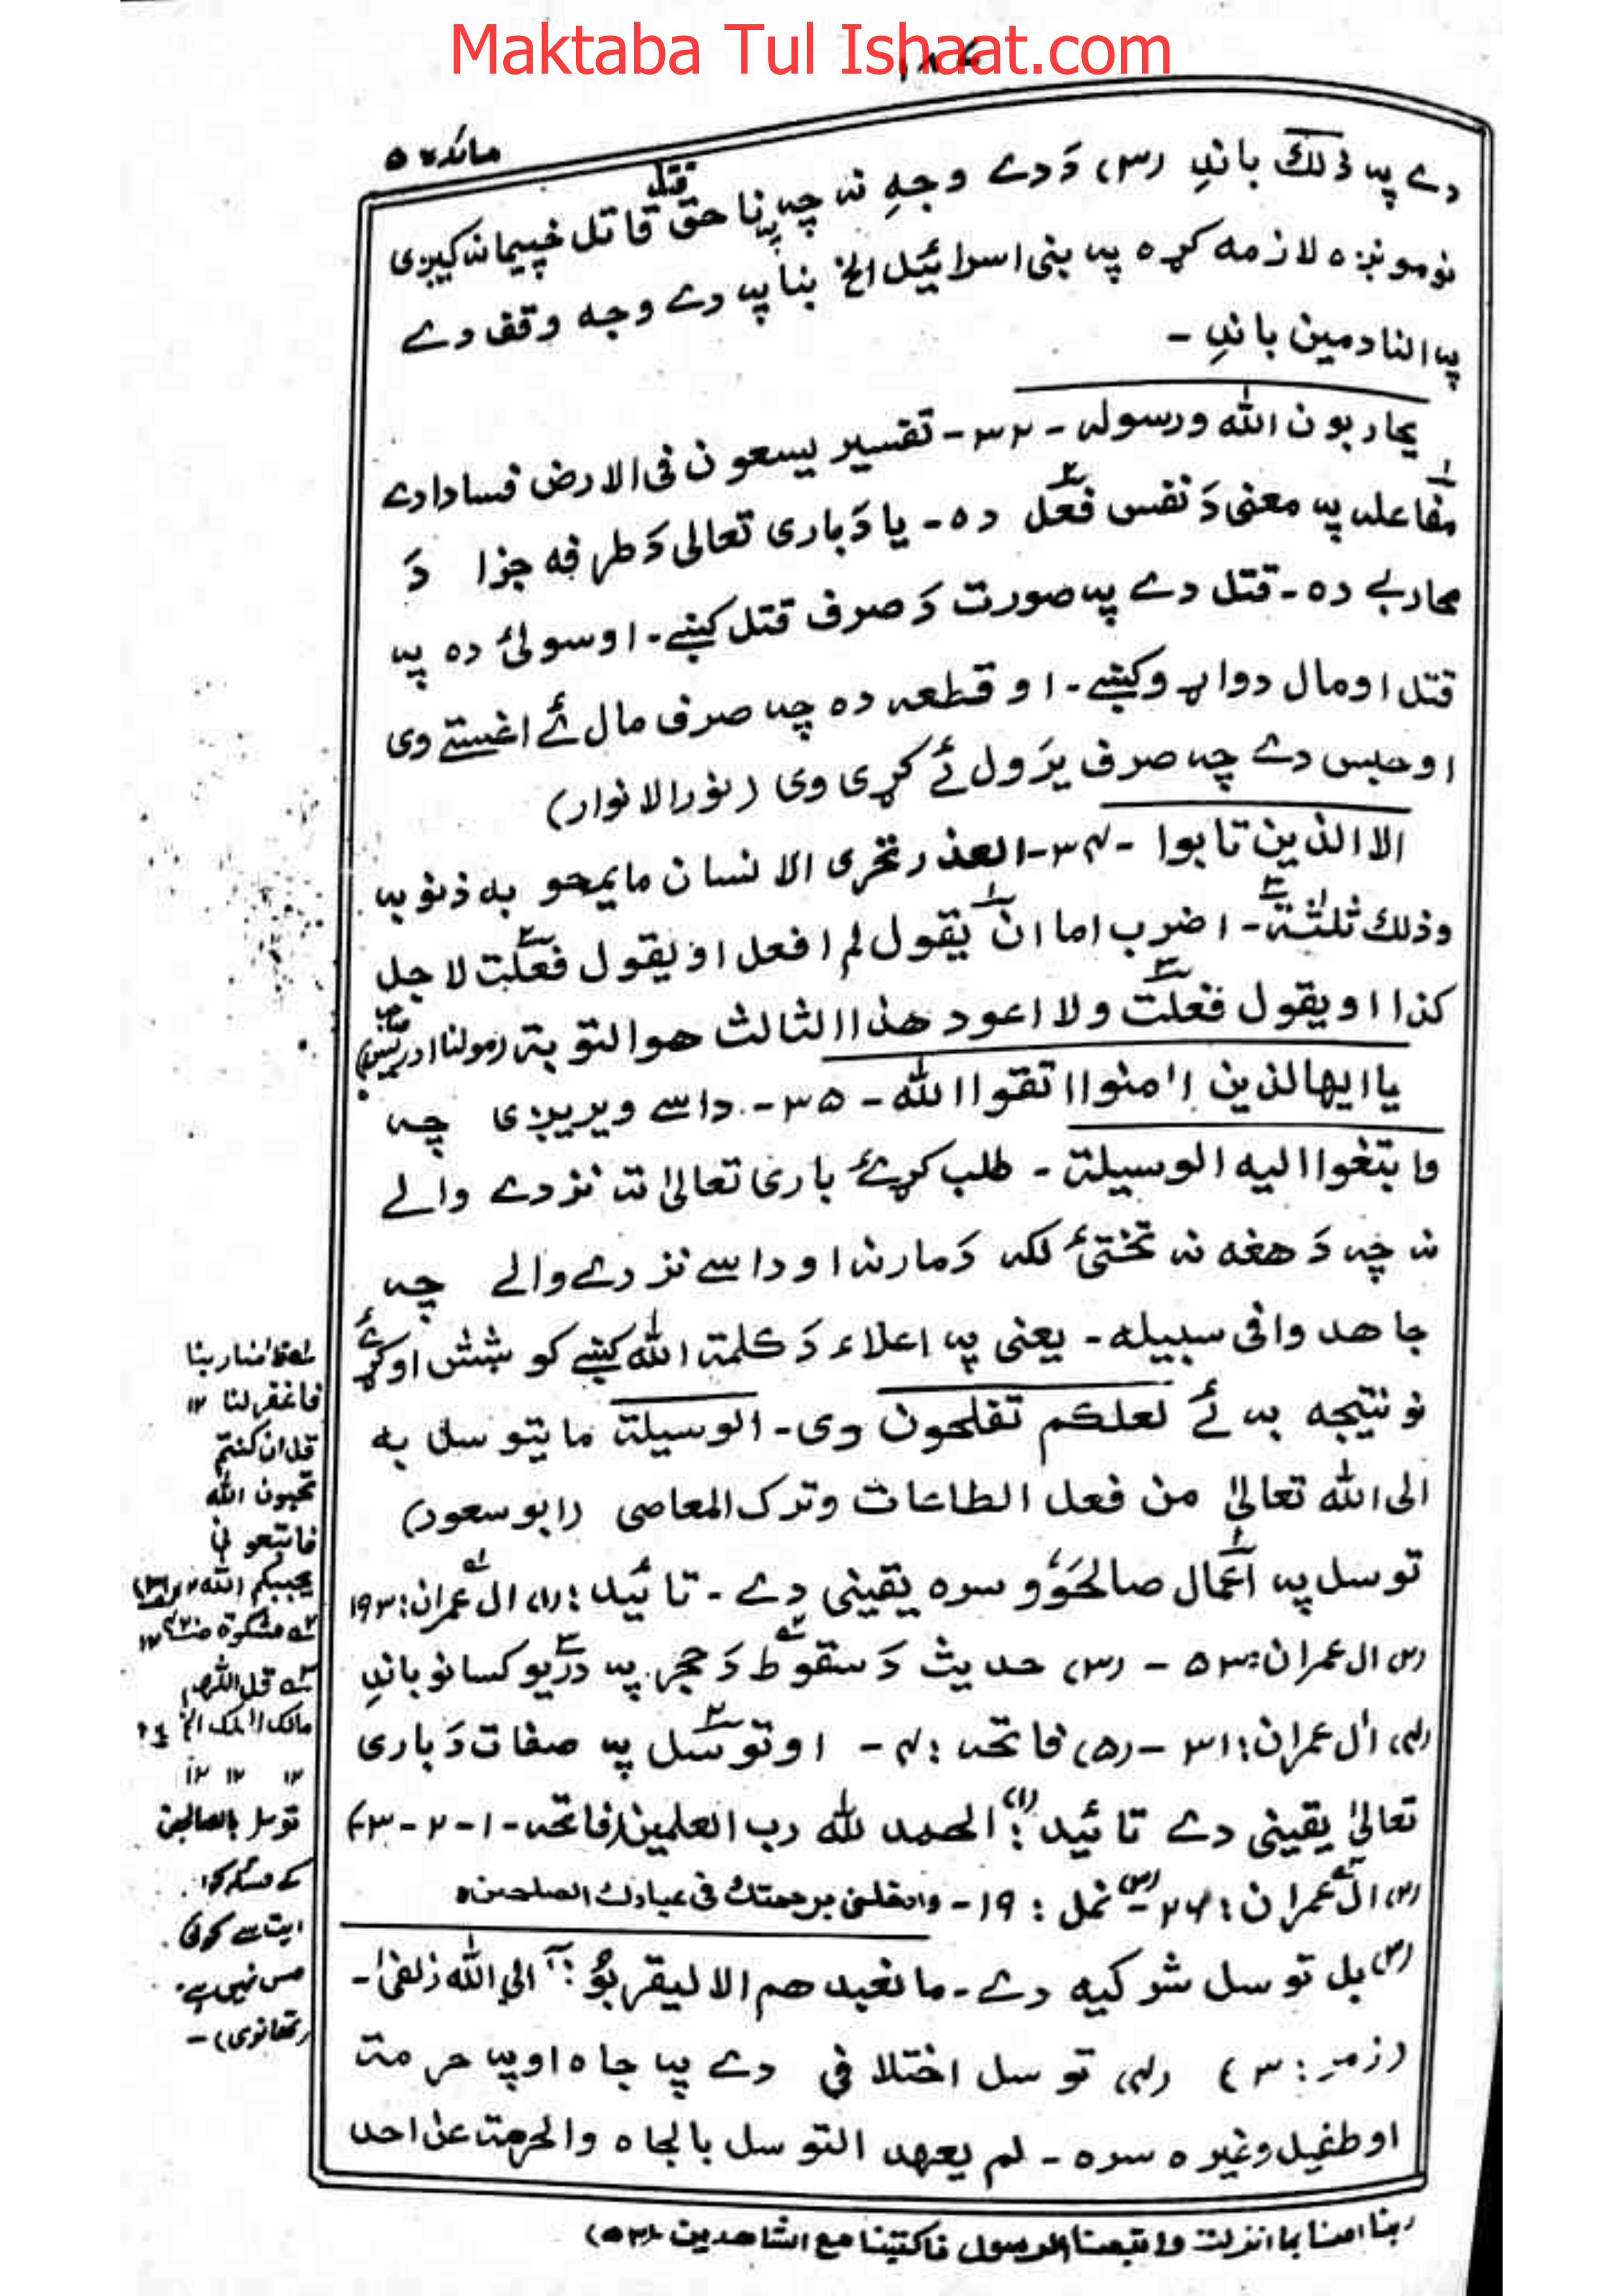 Maktaba Tul Ishaat.com
۱۸۷
مائدہ ۵
دے پہ ذلك باندِ (۳) دَ دے وجہِ نہ چہ پہ نا حق قتل قاتل خپیمانہ کیږی
نو مونږہ لازمہ کړہ پہ بنی اسرائیل الخ بنا پہ دے وجہ وقف دے
پہ النادمین باندِ ۔
یحاربون الله ورسولہ ۔ ۳۳ ۔ تفسیر یسعون فی الارض فسادا دے
مفاعلہ پہ معنی دَ نفس فعل دہ ۔ یا دَ باری تعالی دَ طرفہ جزا دَ
محاربے دہ ۔ قتل دے پہ صورت دَ صرف قتل کښے ۔ او سولئ دہ پہ
قتل او مال دواړو کښے ۔ او قطعہ دہ چہ صرف مال ئے اغستے وی
او حبس دے چہ صرف یرَول ئے کړی وی (نور الانوار)
الا الذین تابوا ۔ ۳۴ ۔ العذر تحری الانسان ما یمحو به ذنوبہ
وذلك ثلثة ۔ اضرب اما ان یقول لم افعل او یقول فعلت لاجل
کذا او یقول فعلت ولا اعود هذا الثالث هو التوبة (مولنا ادریس صاحب)
یا ایها الذین اٰمنوا اتقوا الله ۔ ۳۵ ۔ داسے ویریږی چہ
وابتغوا الیه الوسیلة ۔ طلب کړئ باری تعالیٰ تہ نزدے والے
نہ چہ دَ هغہ نہ تختئ لکہ دَ مار نہ او داسے نزدے والے چہ
جاهدوا فی سبیله ۔ یعنی پہ اعلاء دَ کلمة الله کښے کوشش اوکړئ
نو نتیجہ بہ ئے لعلکم تفلحون وی ۔ الوسیلة ما یتوسل به
الی الله تعالیٰ من فعل الطاعات وترک المعاصی (ابو سعود)
توسل پہ اعمال صالحَوٗ سرہ یقینی دے ۔ تائید : (۱) اٰل عمران : ۱۹۳
(۲) ال عمران : ۵۳ ۔ (۳) حدیث دَ سقوط دَ حجر پہ دریو کسانو باندِ
(۴) اٰل عمران : ۳۱ ۔ (۵) فاتحہ : ۴ ۔ او توسل پہ صفات دَ باری
تعالیٰ یقینی دے تائید : (۱) الحمد لله رب العلمین (فاتحہ ۔ ۱ ۔ ۲ ۔ ۳)
(۲) اٰل عمران : ۲۶ ۔ (۳) نمل : ۱۹ ۔ وادخلنی برحمتك فی عبادك الصلحین ہ
(۳) بل توسل شرکیہ دے ۔ ما نعبدهم الا لیقربوٗنا الی الله زلفیٰ ۔
(زمر : ۳) (۴) توسل اختلافی دے پہ جاہ او پہ حرمت
او طفیل وغیرہ سرہ ۔ لم یعهد التوسل بالجاہ والحرمة عن احد
لہ فاٰمنا ربنا
فاغفرلنا ۱۲
قل ان کنتم
تحبون الله
فاتبعونی
یحببکم الله
قل اللهم
مالک الملک الخ
۱۲ ۱۲ ۱۲
توسل بالصالحین
کے مسئلہ کو
ایت سے کوئی
مس نہیں ہے
(تھانوی) ۔
ربنا اٰمنا بما انزلت واتبعنا الرسول فاکتبنا مع الشاهدین (۵۳)